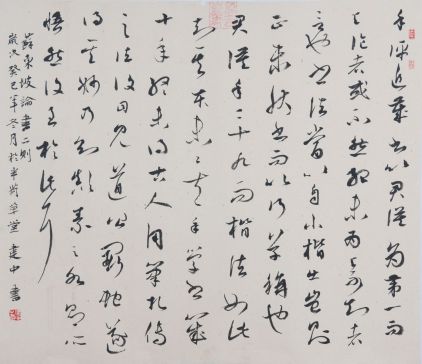 余評近歲書以君謨為第一而
論者或不然殆未易與不知者
言也書法當自小楷出豈有
正未能而以行草稱也
君謨年二十九而楷法如此
知其本末矣 余學草書凡
十年終未得古人用筆相傳
之法後因見道上鬥蛇遂
得其妙乃知顛素之各有所
悟然後至於此耳
蘇東坡論書二則
歲次癸巳年冬月於半草堂 建中書